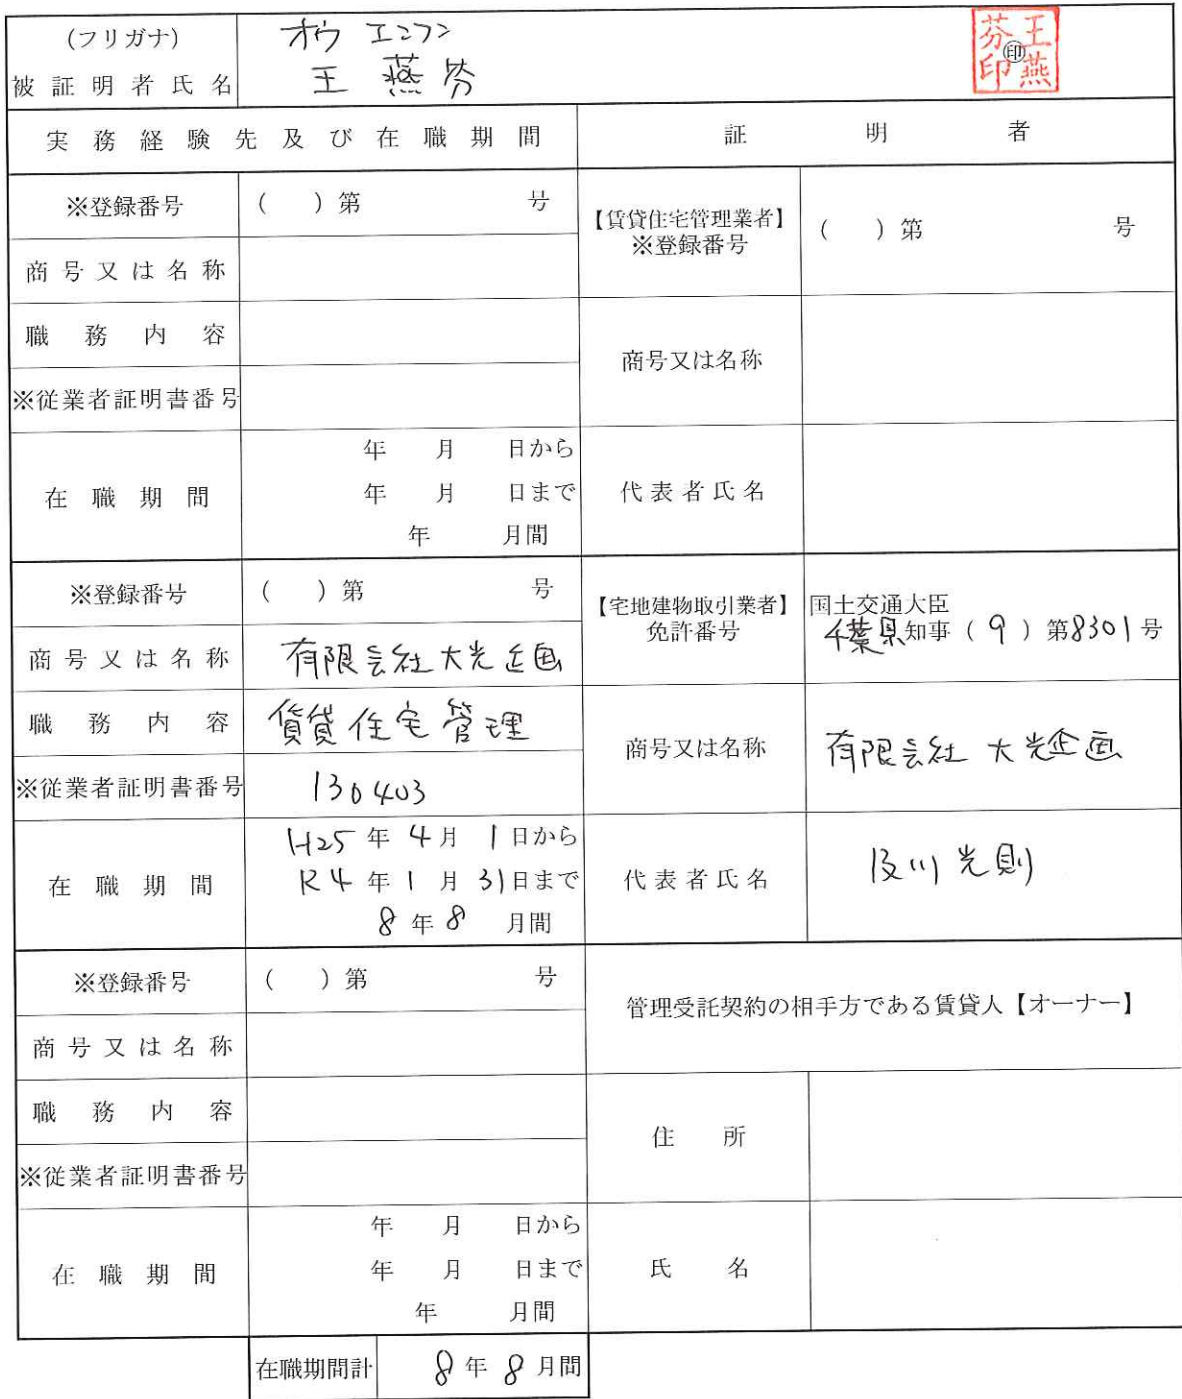 (フリガナ) オウ エンフン
被証明者氏名 王 燕芬 ㊞
王燕芬印
実務経験先及び在職期間 証明者
※登録番号 ( ) 第 号
商号又は名称
職務内容
※従業者証明書番号
在職期間
年 月 日から
年 月 日まで
年 月間
【賃貸住宅管理業者】
※登録番号
( ) 第 号
商号又は名称
代表者氏名
※登録番号 ( ) 第 号
商号又は名称 有限会社大光企画
職務内容 賃貸住宅管理
※従業者証明書番号 130403
在職期間
H25 年 4 月 1 日から
R4 年 1 月 31 日まで
8 年 8 月間
【宅地建物取引業者】
免許番号
国土交通大臣
千葉県 知事 ( 9 ) 第8301号
商号又は名称 有限会社 大光企画
代表者氏名 及川光則
※登録番号 ( ) 第 号
商号又は名称
職務内容
※従業者証明書番号
在職期間
年 月 日から
年 月 日まで
年 月間
管理受託契約の相手方である賃貸人【オーナー】
住所
氏名
在職期間計 8 年 8 月間